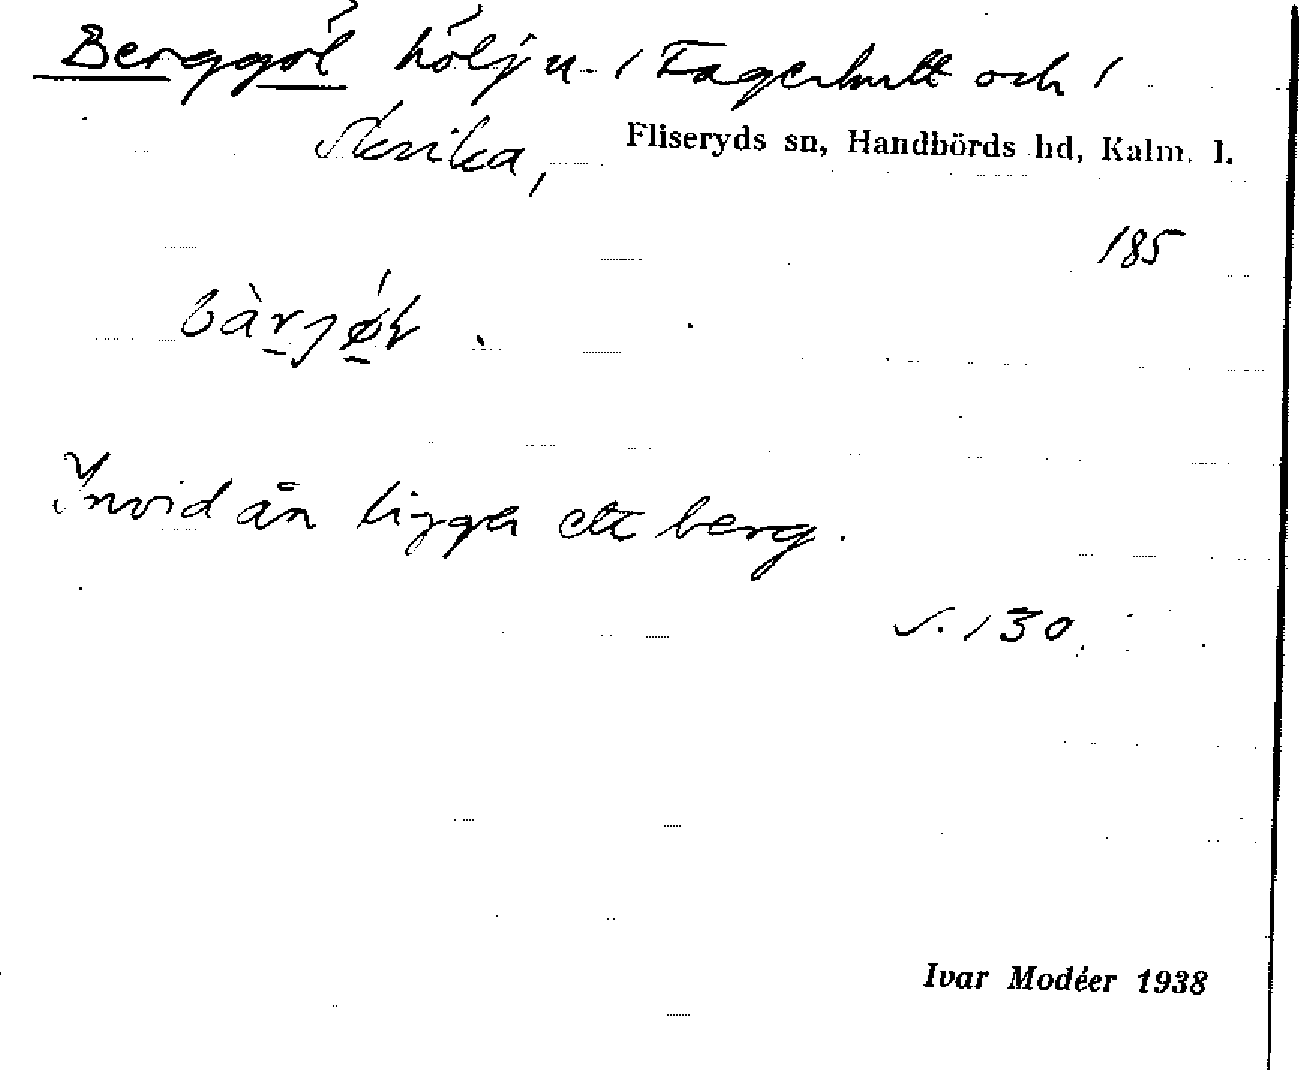 Berggöl hölju i Fagerhult och i
Skvika,
Fliseryds sn, Handbörds hd, Kalm. l.
185
bàrjø̀l.
Invid ån ligger ett berg.
s. 130.
Ivar Modéer 1938